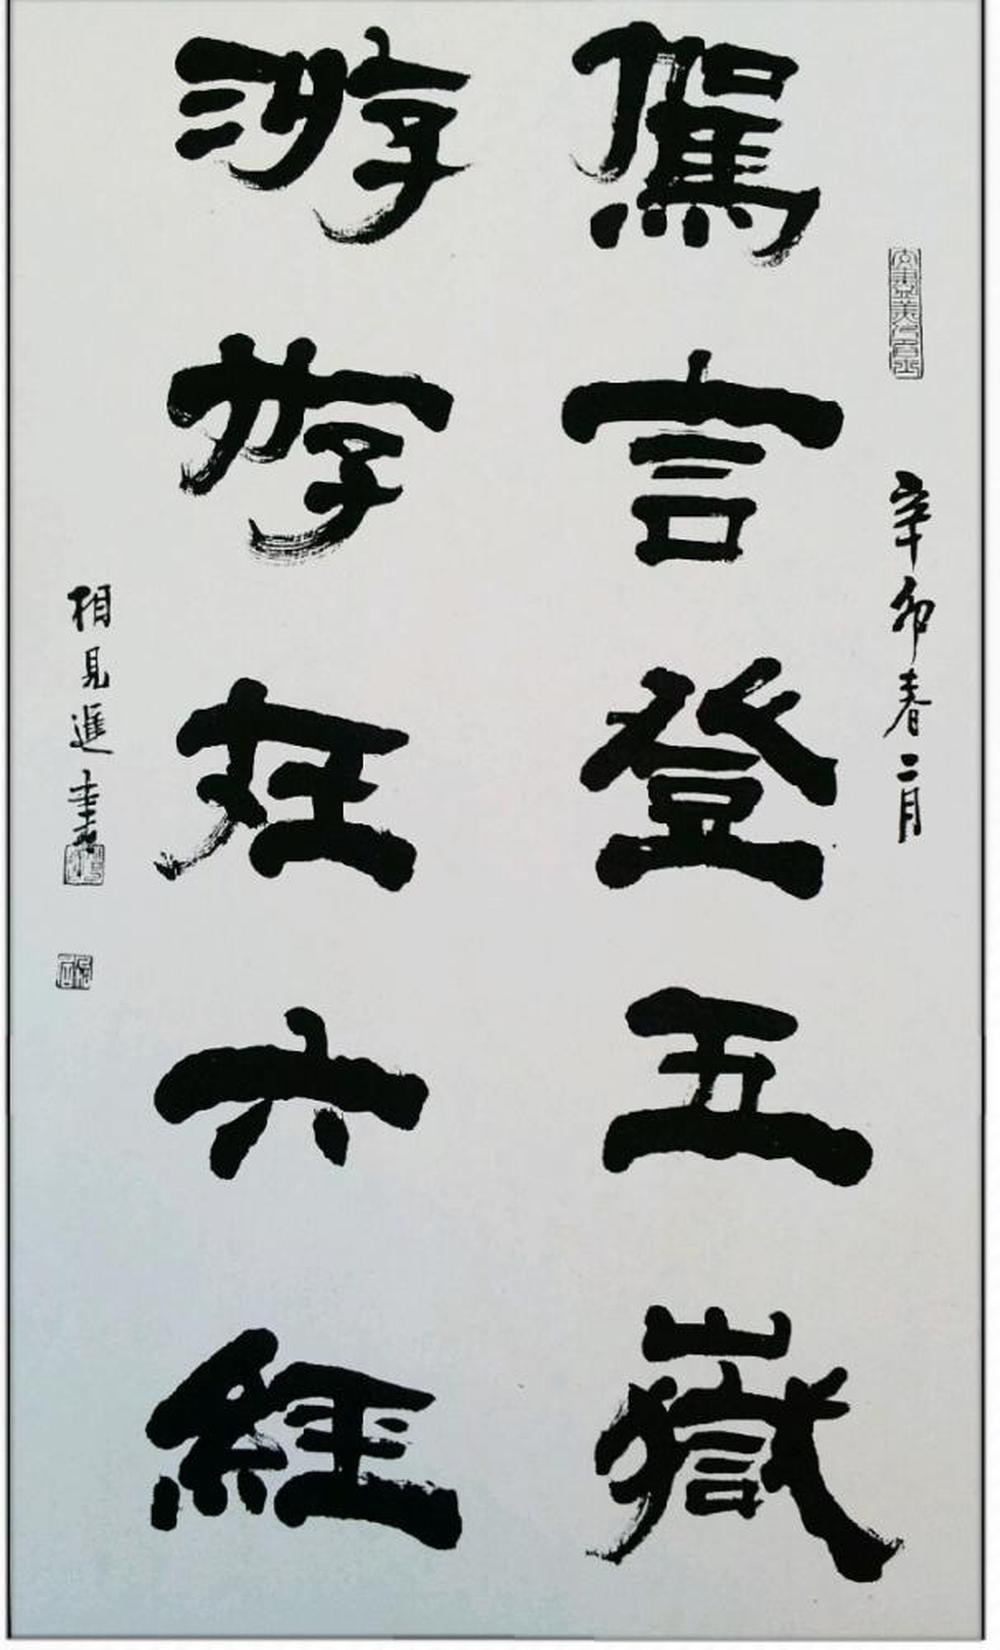 辛卯春二月
駕言登五嶽
游好在六經
相見進書